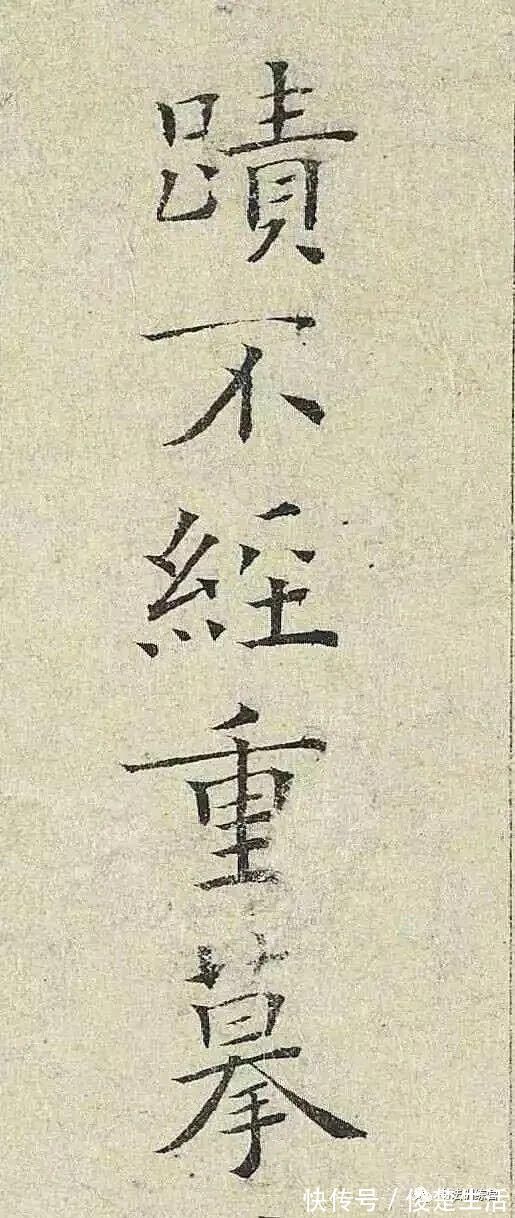 蹟不經重摹
快传号／俊楚生活